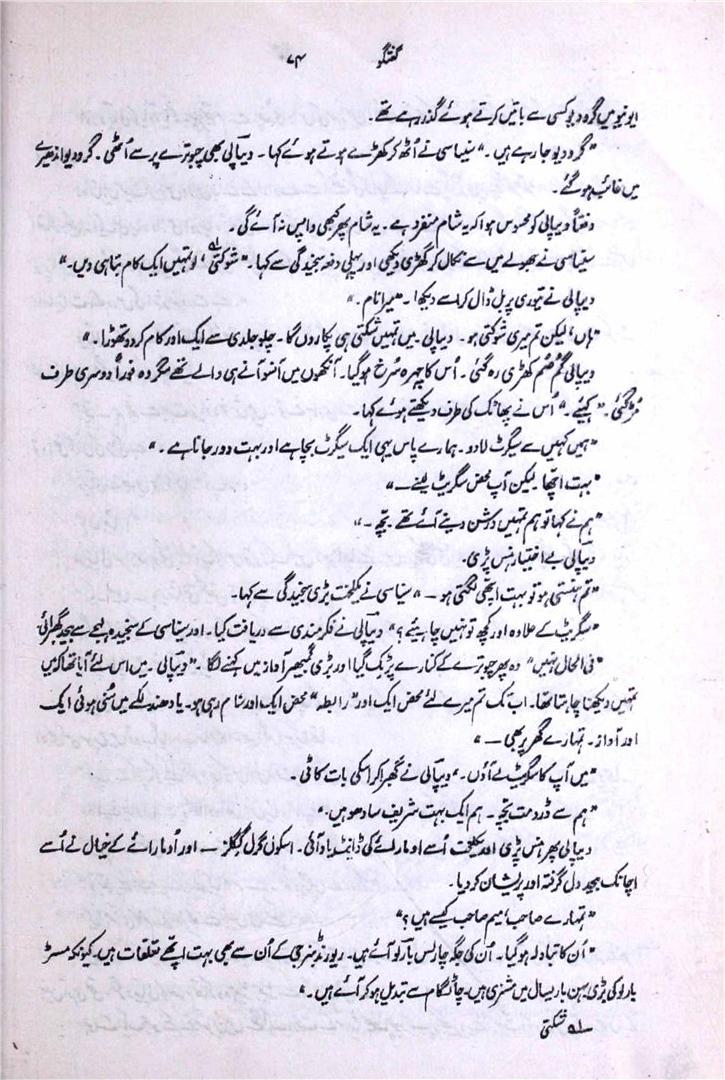 گفتگو ۷۴
ایونیو میں گرودیو کسی سے باتیں کرتے ہوئے گذر رہے تھے۔
"گرودیو جا رہے ہیں۔" سنیاسی نے اُٹھ کر کھڑے ہوتے ہوئے کہا۔ دیپالی بھی چبوترے پر سے اُٹھی۔ گرودیو اندھیرے
میں غائب ہو گئے۔
دفعتاً دیپالی کو محسوس ہوا کہ یہ شام منفرد ہے۔ یہ شام پھر کبھی واپس نہ آئے گی۔
سنیاسی نے جھولے میں سے نکال کر گھڑی دیکھی اور پہلی دفعہ سنجیدگی سے کہا۔ "شوکتی؎۱، لو تمہیں ایک کام بتا ہی دیں۔"
دیپالی نے تیوری پر بل ڈال کر اسے دیکھا۔ "میرا نام۔"
"ہاں، لیکن تم میری شوکتی ہو۔ دیپالی۔ میں تمہیں شکتی ہی پکاروں گا۔ چلو جلدی سے ایک اور کام کر دو تھوڑا۔"
دیپالی گم صُم کھڑی رہ گئی۔ اُس کا چہرہ سُرخ ہو گیا۔ آنکھوں میں آنسو آنے ہی والے تھے مگر وہ فوراً دوسری طرف
مُڑ گئی۔ "کہیئے۔" اُس نے پھاٹک کی طرف دیکھتے ہوئے کہا۔
"ہمیں کہیں سے سگرٹ لا دو۔ ہمارے پاس یہی ایک سگرٹ بچا ہے اور بہت دور جانا ہے۔"
"بہت اچھا۔ لیکن آپ محض سگریٹ لینے ــ"
"ہم نے کہا تو ہم تمہیں درشن دینے آئے تھے۔ بچّہ۔"
دیپالی بے اختیار ہنس پڑی۔
"تم ہنستی ہو تو بہت اچھی لگتی ہو ــ" سنیاسی نے یکلخت بڑی سنجیدگی سے کہا۔
"سگریٹ کے علاوہ اور کچھ تو نہیں چاہیئے؟" دیپالی نے فکرمندی سے دریافت کیا۔ اور سنیاسی کے سنجیدہ لہجے سے بیحد گھبرائی۔
"فی الحال نہیں" وہ پھر چبوترے کے کنارے پر ٹک گیا اور بڑی گمبھیر آواز میں کہنے لگا۔ "دیپالی۔ میں اس لئے آیا تھا کہ میں
تمہیں دیکھنا چاہتا تھا۔ اب تک تم میرے لئے محض ایک اور "رابطہ" محض ایک اور نام رہی ہو۔ یا دھندلکے میں سُنی ہوئی ایک
اور آواز۔ تمہارے گھر پر بھی ــ"
"میں آپ کا سگریٹ لے آؤں۔" دیپالی نے گھبرا کر اسکی بات کاٹی۔
"ہم سے ڈرو مت بچّہ۔ ہم ایک بہت شریف سادھو ہیں۔
دیپالی پھر ہنس پڑی اور یکلخت اُسے اوما رائے کی ڈانٹ یاد آئی۔ اسکول گرل گِگلز ــ اور اُوما رائے کے خیال نے اُسے
اچانک بیحد دل گرفتہ اور پریشان کر دیا۔
"تمہارے صاحب میم صاحب کیسے ہیں؟"
"اُن کا تبادلہ ہو گیا۔ اُن کی جگہ چارلس بارلو آئے ہیں۔ ریورنڈ بنرجی کے اُن سے بھی بہت اچھے تعلقات ہیں۔ کیونکہ مسٹر
بارلو کی بڑی بہن باریسال میں مشنری ہیں۔ چاٹگام سے تبدیل ہو کر آئے ہیں۔"
؎۱ شکتی